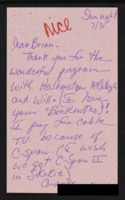 nice
Sun. night
7/31
Dear Brian,
Thank you for the
wonderful program
with
and Will. I love
your "Booknotes"!!
I pay for cable
TV because of
C-Span. I wish
we got C-Span II
in Skokie.